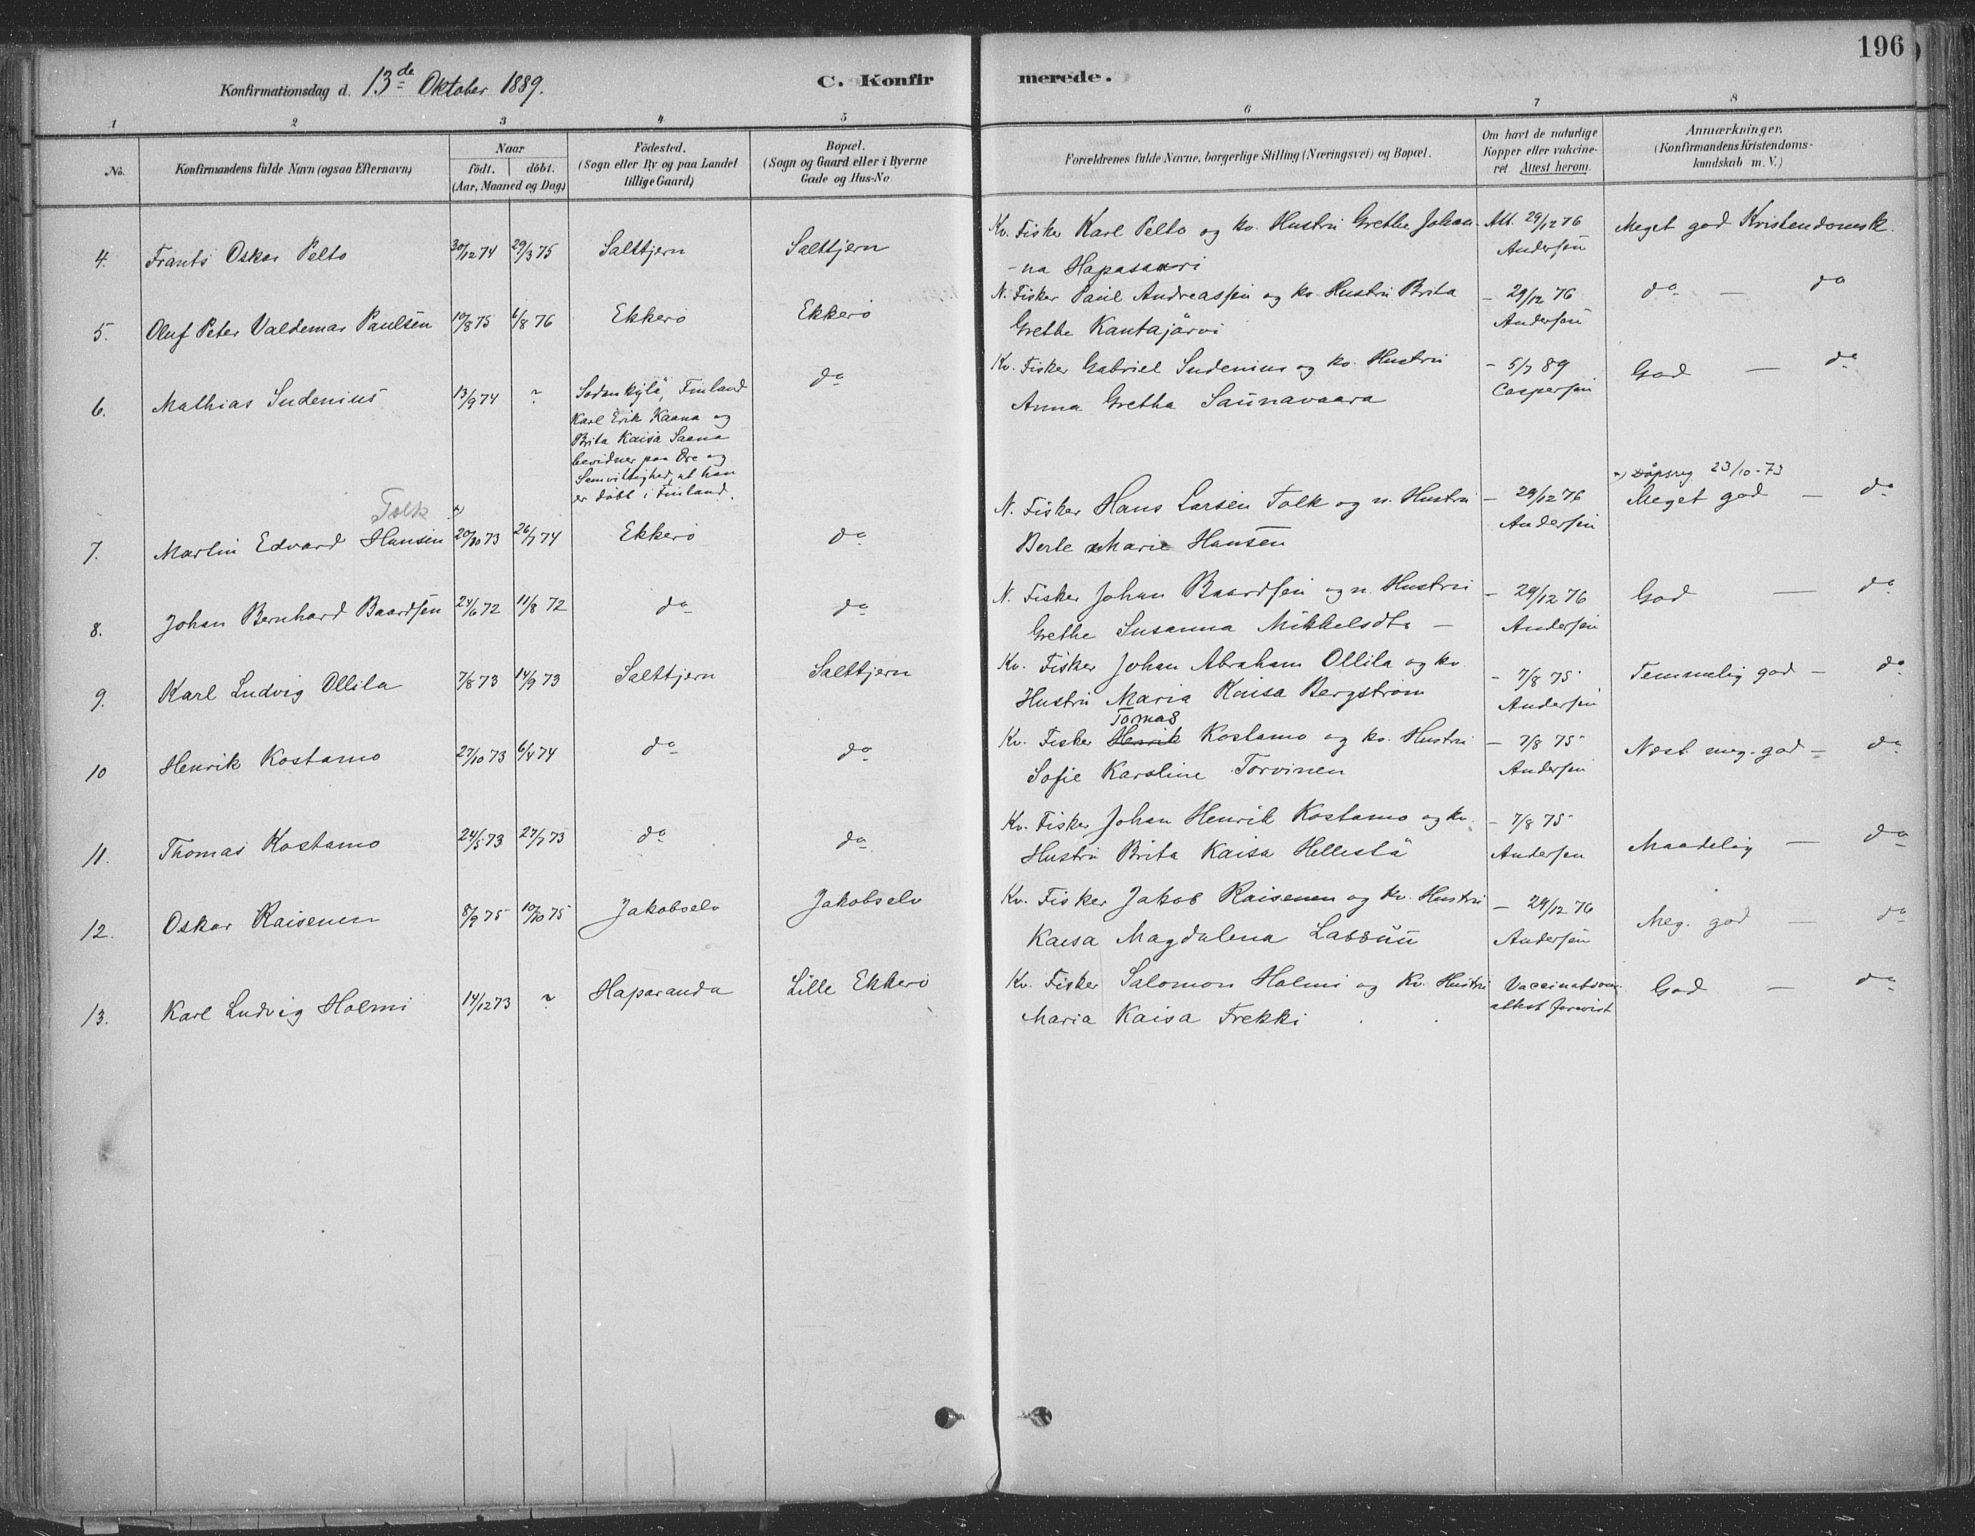 196
Konfirmationsdag d. 13de Oktober 1889. C. Konfirmerede.
1 2 3 4 5 6 7 8
No. Konfirmandens fulde Navn (ogsaa Efternavn) Naar födt. döbt. (Aar, Maaned og Dag) Födested. (Sogn eller By og paa Landet tillige Gaard) Bopæl. (Sogn og Gaard eller i Byerne Gade og Hus-No Forældrenes fulde Navne, borgerlige Stilling (Næringsvei) og Bopæl. Om havt de naturlige Kopper eller vakcineret Attest herom. Anmærkninger. (Konfirmandens Kristendomskundskab m. V.)
4. Frants Oskar Pelto 30/12 74 29/3 75 Salttjern Salttjern Kv. Fisker Karl Pelto og kv. Hustru Grethe Johan- Att. 29/12 76 Meget god Kristendomsk.
-na Hapasaari Andersen
5. Oluf Peter Valdemar Paulsen 10/8 75 6/8 76 Ekkerö Ekkerö N. Fisker Paul Andreassen og kv. Hustru Brita – 29/12 76 do – do
Grethe Kantajärvi Andersen
6. Mathias Sudenius 13/9 74 ~ Sodankylä, Finland do Kv. Fisker Gabriel Sudenius og kv. Hustru – 5/7 89 God – do
Karl Erik Kaana og Anna Gretha Saunavaara Caspersen
Brita Kaisa Saana
bevidner paa Ære og
Samvittighed, at han
er döbt i Finland.
Tolk 23/10-73
7. Martin Edvard Hansen 20/10 73 26/7 74 Ekkerö do N. Fisker Hans Larsen Tolk og n. Hustru – 29/12 76 Meget god – do
Berle Marie Hansen Andersen
8. Johan Bernhard Baardsen 24/6 72 11/8 72 do do N. Fisker Johan Baardsen og n. Hustru – 29/12 76 God – do
Grethe Susanna Mikkelsdtr – Andersen
9. Karl Ludvig Ollila 7/8 73 14/9 73 Salttjern Salttjern Kv. Fisker Johan Abraham Ollila og kv. – 7/8 75 Temmelig god – do
Hustru Maria Kaisa Bergström Andersen
Tomas
10 Henrik Kostamo 27/10 73 6/4 74 do do Kv. Fisker Henrik Kostamo og kv. Hustru – 7/8 75 Næst meg. god – do
Sofie Karoline Torvinen Andersen
11. Thomas Kostamo 24/5 73 27/7 73 do do Kv. Fisker Johan Henrik Kostamo og kv. – 7/8 75 Maadelig – do
Hustru Brita Kaisa Hellestä Andersen
12. Oskar Raisenen 8/9 75 10/10 75 Jakobselv Jakobselv Kv. Fisker Jakob Raisenen og kv. Hustru – 29/12 76 Meg. god – do
Kaisa Magdalena Andersen
13. Karl Ludvig Holmi 14/12 73 ~ Haparanda Lille Ekkerö Kv. Fisker Salomon Holmi og Kv. Hustru Vaccinations- God – do
Maria Kaisa Frekki attest forevist